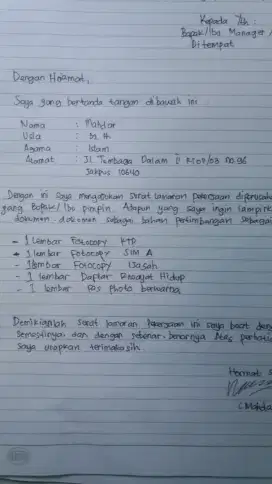 Kepada Yth :
Bapak/Ibu Manager /
Ditempat
Dengan Hormat,
Saya yang bertanda tangan dibawah ini
Nama :
Usia :
Agama : Islam
Alamat : Jl Tembaga Dalam RT08/08 no.96
Jakpus 10640
Dengan ini Saya Mengajukan Surat Lamaran Pekerjaan diperusaha
yang Bapak/Ibu pimpin. Adapun yang Saya ingin lampirk
dokumen-dokumen sebagai bahan pertimbangan sebagai
- 1 Lembar Fotocopy KTP
- 1 lembar Fotocopy SIM A
- 1 lembar Fotocopy Ijasah
- 1 lembar Daftar Riwayat Hidup
- 1 lembar pas photo berwarna
Demikianlah surat lamaran pekerjaan ini saya buat deng
Semestinya, dan dengan sebenar-benarnya Atas perhatia
saya ucapkan terimakasih.
Hormat s